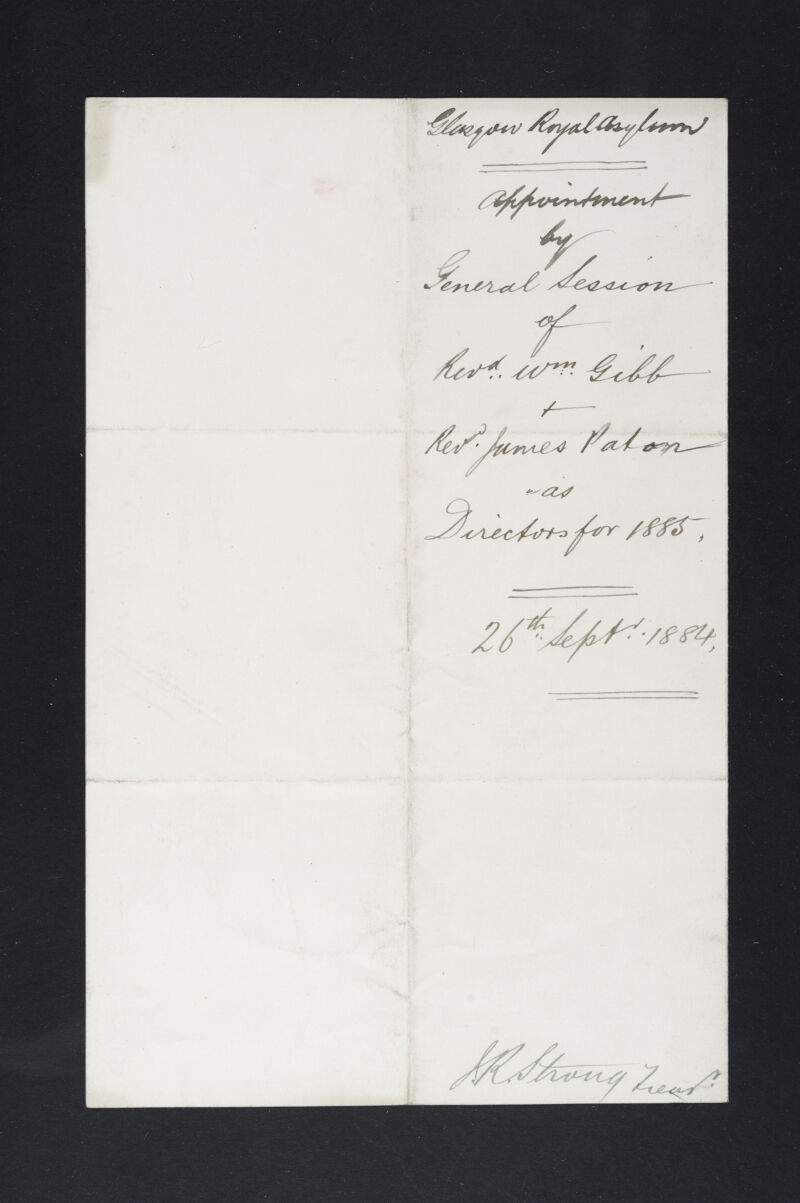 Glasgow Royal Asylum
Appointment
by
General Session
of
Revd. Wm. Gibb
+
Revd. James Paton
as
Directors for 1885,
26th. Septr. 1884,
J.R. Strong Treasr